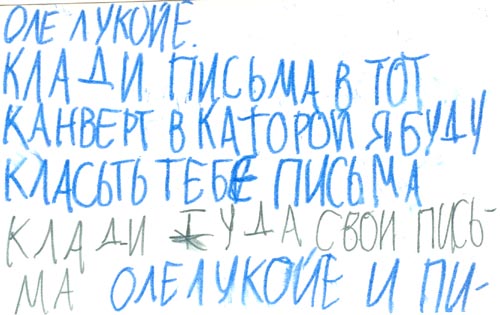 ОЛЕ ЛУКОЙЕ.
КЛАДИ ПИСЬМА В ТОТ
КАНВЕРТ В КАТОРОЙ Я БУДУ
КЛАСЬТЬ ТЕБЕ ПИСЬМА
КЛАДИ ТУДА СВОИ ПИСЬ-
МА ОЛЕ ЛУКОЙЕ И ПИ-